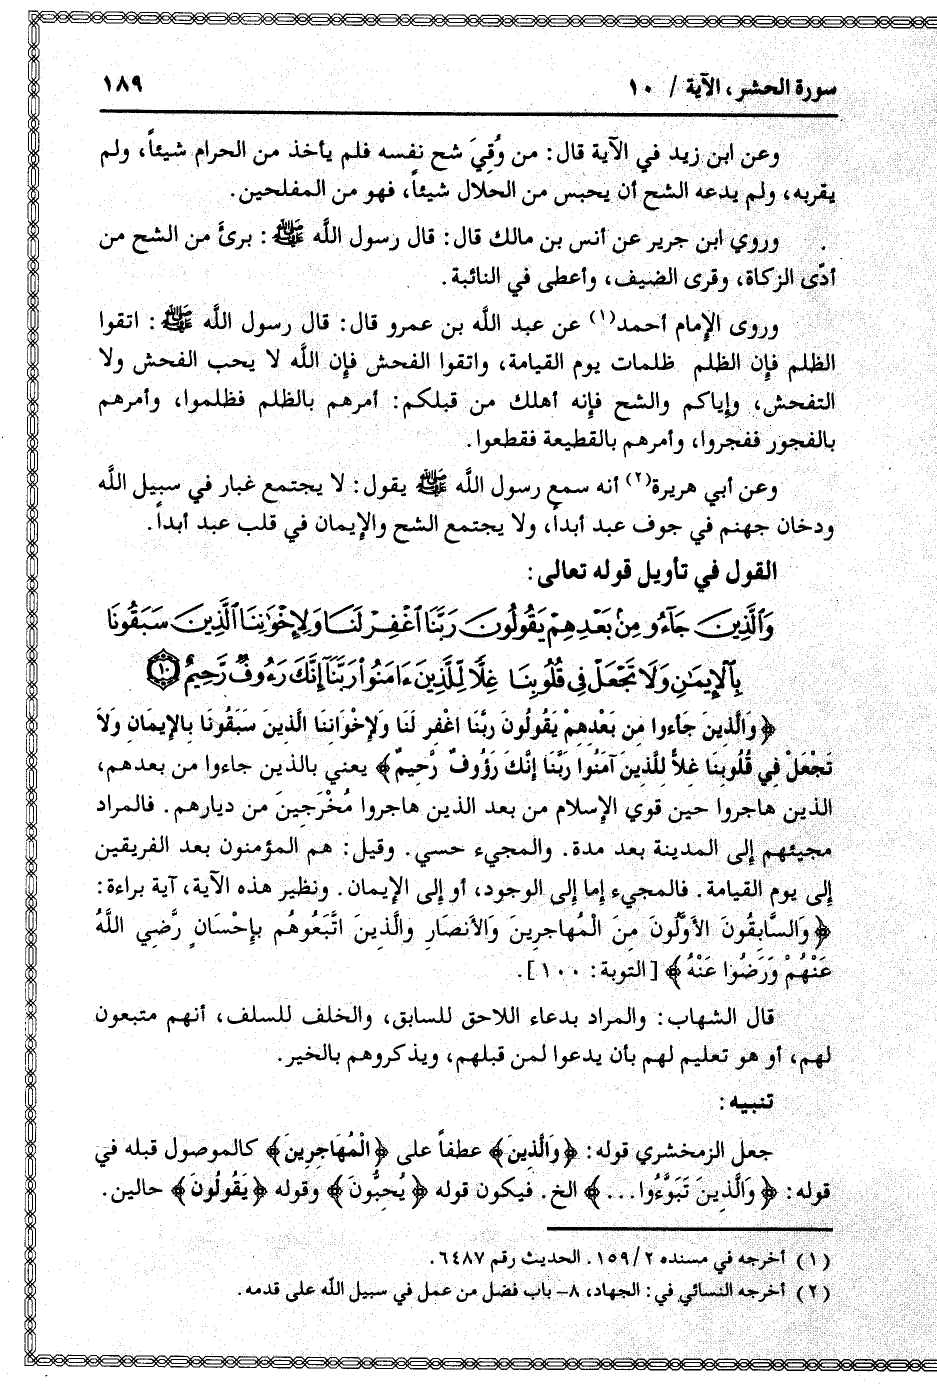 سورة الحشر، الآية / ١٠
١٨٩
وعن ابن زيد في الآية قال: من وُقِيَ شح نفسه فلم يأخذ من الحرام شيئاً، ولم
يقربه، ولم يدعه الشح أن يحبس من الحلال شيئاً، فهو من المفلحين.
وروي ابن جرير عن أنس بن مالك قال: قال رسول اللَّه ﷺ: برئَ من الشح من
أدّى الزكاة، وقرى الضيف، وأعطى في النائبة.
وروى الإمام أحمد(١) عن عبد اللَّه بن عمرو قال: قال رسول اللَّه ﷺ: اتقوا
الظلم فإن الظلم ظلمات يوم القيامة، واتقوا الفحش فإن اللَّه لا يحب الفحش ولا
التفحش، وإياكم والشح فإنه أهلك من قبلكم: أمرهم بالظلم فظلموا، وأمرهم
بالفجور ففجروا، وأمرهم بالقطيعة فقطعوا.
وعن أبي هريرة(٢) أنه سمع رسول اللَّه ﷺ يقول: لا يجتمع غبار في سبيل اللَّه
ودخان جهنم في جوف عبد أبداً، ولا يجتمع الشح والإيمان في قلب عبد أبداً.
القول في تأويل قوله تعالى:
وَٱلَّذِينَ جَآءُو مِنۢ بَعْدِهِمْ يَقُولُونَ رَبَّنَا ٱغْفِرْ لَنَا وَلِإِخْوَٰنِنَا ٱلَّذِينَ سَبَقُونَا
بِٱلْإِيمَٰنِ وَلَا تَجْعَلْ فِى قُلُوبِنَا غِلًّا لِّلَّذِينَ ءَامَنُوا۟ رَبَّنَآ إِنَّكَ رَءُوفٌ رَّحِيمٌ ١٠
﴿وَالَّذِينَ جَاءوا مِن بَعْدِهِمْ يَقُولُونَ رَبَّنَا اغْفِر لَنَا وَلإِخْوَانِنَا الَّذينَ سَبَقُونَا بِالإِيمَانِ وَلاَ
تَجْعَلْ فِي قُلُوبِنَا غِلاًّ لِلَّذِينَ آمَنُوا رَبَّنَا إِنَّكَ رَؤُوفٌ رَّحِيمٌ﴾ يعني بالذين جاءوا من بعدهم،
الذين هاجروا حين قوي الإسلام من بعد الذين هاجروا مُخْرَجِينَ من ديارهم. فالمراد
مجيئهم إلى المدينة بعد مدة. والمجيء حسي. وقيل: هم المؤمنون بعد الفريقين
إلى يوم القيامة. فالمجيء إما إلى الوجود، أو إلى الإيمان. ونظير هذه الآية، آية براءة:
﴿وَالسَّابِقُونَ الأَوَّلُونَ مِنَ الْمُهاجرِينَ وَالأَنصَارِ والَّذينَ اتَّبَعُوهُم بإِحْسَانٍ رَّضِي اللَّهُ
عَنْهُمْ وَرَضُوا عَنْهُ﴾ [التوبة: ١٠٠].
قال الشهاب: والمراد بدعاء اللاحق للسابق، والخلف للسلف، أنهم متبعون
لهم، أو هو تعليم لهم بأن يدعوا لمن قبلهم، ويذكروهم بالخير.
تنبيه:
جعل الزمخشري قوله: ﴿وَالَّذِينَ﴾ عطفاً على ﴿الْمُهَاجِرِينَ﴾ كالموصول قبله في
قوله: ﴿وَالَّذِينَ تَبَوَّءُوا...﴾ الخ. فيكون قوله ﴿يُحِبُّونَ﴾ وقوله ﴿يَقُولُونَ﴾ حالين.
(١) أخرجه في مسنده ٢/ ١٥٩. الحديث رقم ٦٤٨٧.
(٢) أخرجه النسائي في: الجهاد، ٨- باب فضل من عمل في سبيل اللَّه على قدمه.